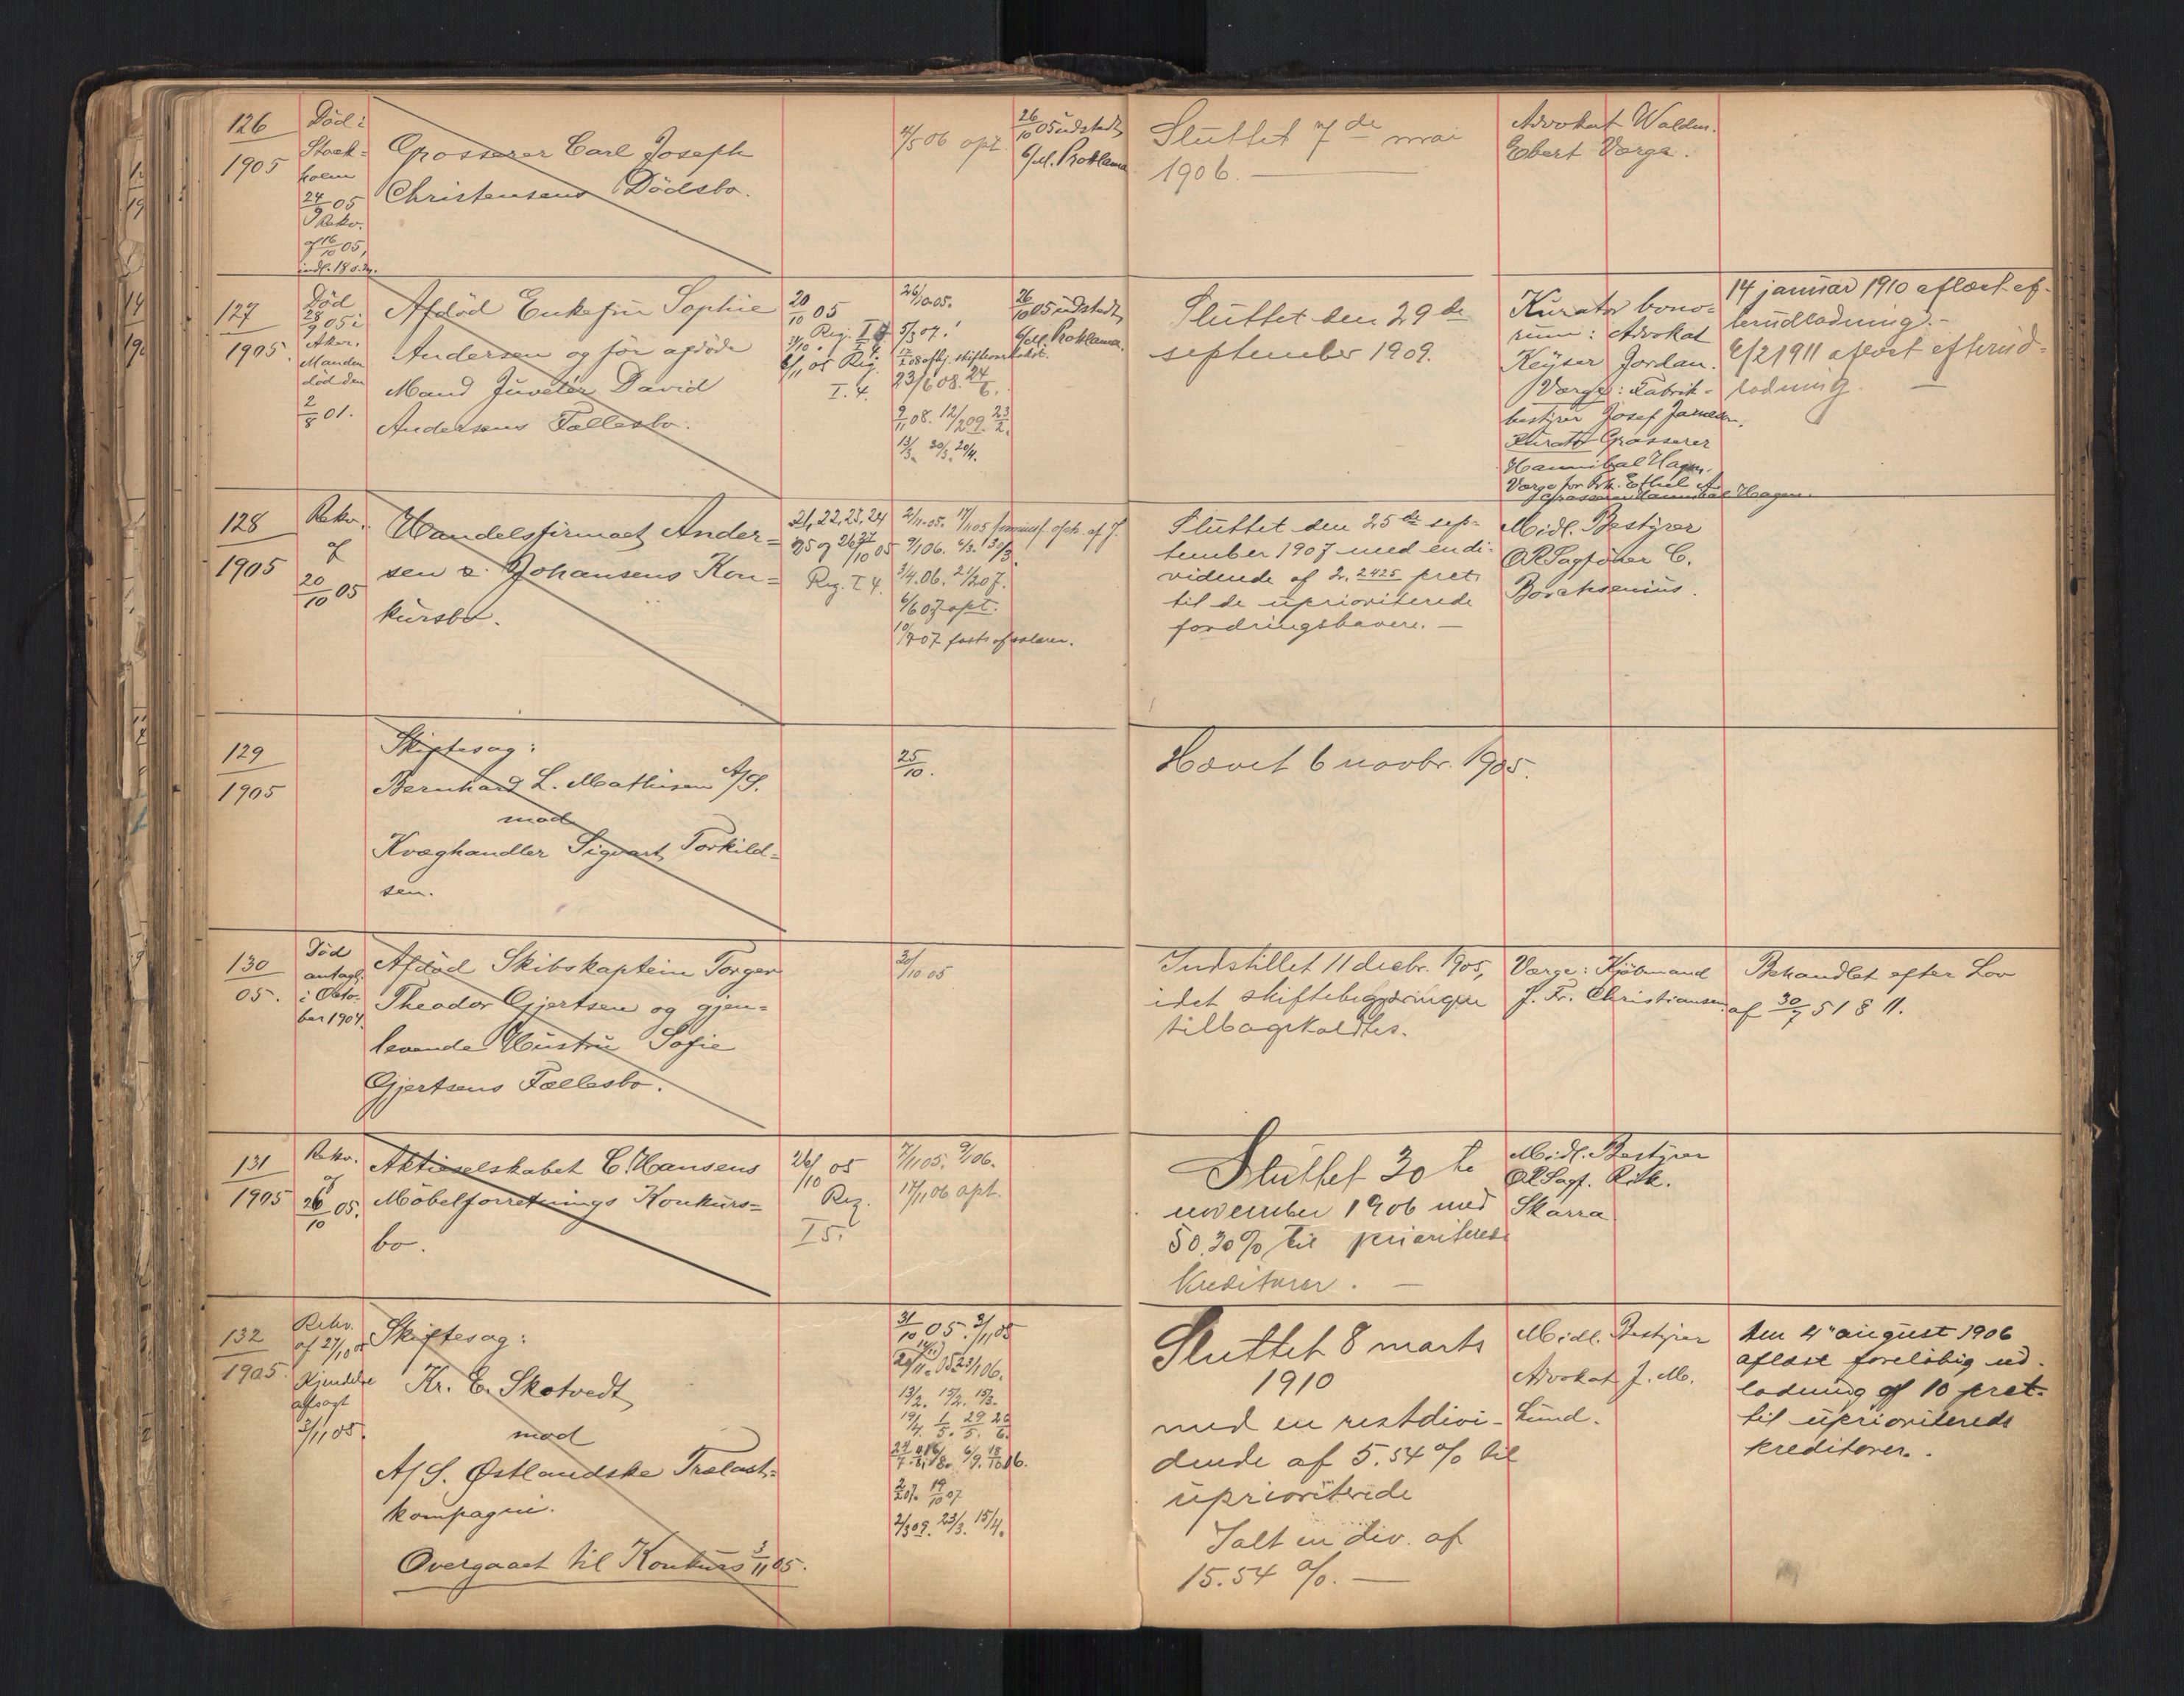 126
1905
Död i
Stock-
holm
24/9 05
Rekv.
af 16/10 05,
indl. 18 s.m.
Grosserer Carl Joseph
Christensens Dödsbo.
4/5 06 opt.
26/10 05 udstedt
6/M. Proklama
Sluttet 7de mai
1906. —
Advokat Waldm.
Ebert Værge.
127
1905.
Död
28/9 05 i
Aker.
Manden
död den
2/8 01.
Afdöd Enkefru Sophie
Andersen og för afdöde
Mand Juvelér David
Andersens Fællesbo.
20/10 05
Reg. I
6/11 05 Reg.
I. 4.
26/10 05.
23/6 08. 24/6.
9/11 08. 12/2 09. 23/2.
13/3. 30/3. 20/4.
26/10 05 udstedt
Proklama.
Sluttet den 29de
september 1909.
Kurator bono-
rum: Advokat
Keyser Jordan.
Værge: Fabrik-
bestyrer Josef
Kurator Grosserer
Hannibal Hagen.
Værge for Frk. Ethel A.
Grosserer Hannibal Hagen.
14 januar 1910 aflæst ef-
terudlodning. -
6/2 1911 aflæst efterud-
lodning. —
128
1905
Rekv.
af
20/10 05
Handelsfirmaet Ander-
sen & Johansens Kon-
kursbo.
21, 22, 23, 24
25 og 26 27/10 05
Reg. I 4.
2/11 05. 17/11 05
9/1 06. 6/3. 30/3.
3/4. 06. 21/2 07.
6/6 07 opt.
10/9 07 fasts. af salærer.
Sluttet den 25de sep-
tember 1907 med en di-
vidende af 2,2425 prct.
til de uprioriterede
fordringshavere. —
Midl. Bestyrer
ORSagförer C.
Borchsenius.
129
1905
Skiftesag:
Bernhard L. Mathisen A/S.
mod
Kvæghandler Sigvart Torkild-
sen.
25/10.
Hævet 6 novbr. 1905.
130
05.
Död
antagl.
i Octo-
ber 1904.
Afdöd Skibskaptein Torger
Theodor Gjertsen og gjen-
levende Hustru Sofie
Gjertsens Fællesbo.
30/10 05
Indstillet 11 decbr. 1905,
idet skiftebegjæringen
tilbagekaldtes.
Værge: Kjöbmand
J. Fr. Christiansen
Behandlet efter Lov
af 30/7 51 § 11.
131
1905
Rekv.
af
26/10 05.
Aktieselskabet C. Hansens
Möbelforretnings Konkurs-
bo.
26/10 05
Reg.
I 5.
7/11 05. 9/1 06.
17/11 06 opt.
Sluttet 30te
november 1906 med
50.30% til prioriterede
Kreditorer. —
Midl. Bestyrer
ORSagf. Rik.
Skarra
132
1905.
Rekv.
af 27/10 05
Kjendelse
afsagt
3/11 05.
Skiftesag:
Kr. E. Skotvedt
mod
A/S. Østlandske Trælast-
kompagni.
Overgaaet til Konkurs 3/11 05.
31/10 05. 3/11 05
20/11. 05 23/1 06.
13/2. 15/2. 15/3.
19/4. 1/5. 29/5. 26/6.
2/2 07. 19/10 07
2/3 09. 23/3. 15/4.
Sluttet 8 marts
1910
med en restdivi-
dende af 5.54 % til
uprioriterede
Ialt en div. af
15.54 %. —
Midl. Bestyrer
Advokat J. M.
Lund.
den 4de august 1906
aflæst foreløbig ud-
lodning af 10 prct.
til uprioriterede
kreditorer.